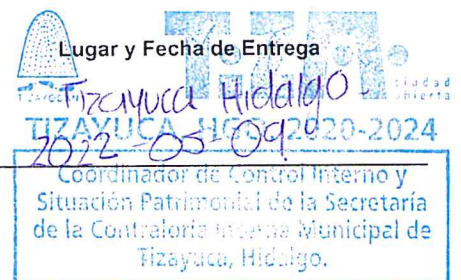 Lugar y Fecha de Entrega
ciudad
abierta
Tizayuca Hidalgo.
TIZAYUCA, HGO. 2020-2024
2022-05-09.
Coordinador de Control Interno y
Situación Patrimonial de la Secretaría
de la Contraloría Interna Municipal de
Tizayuca, Hidalgo.